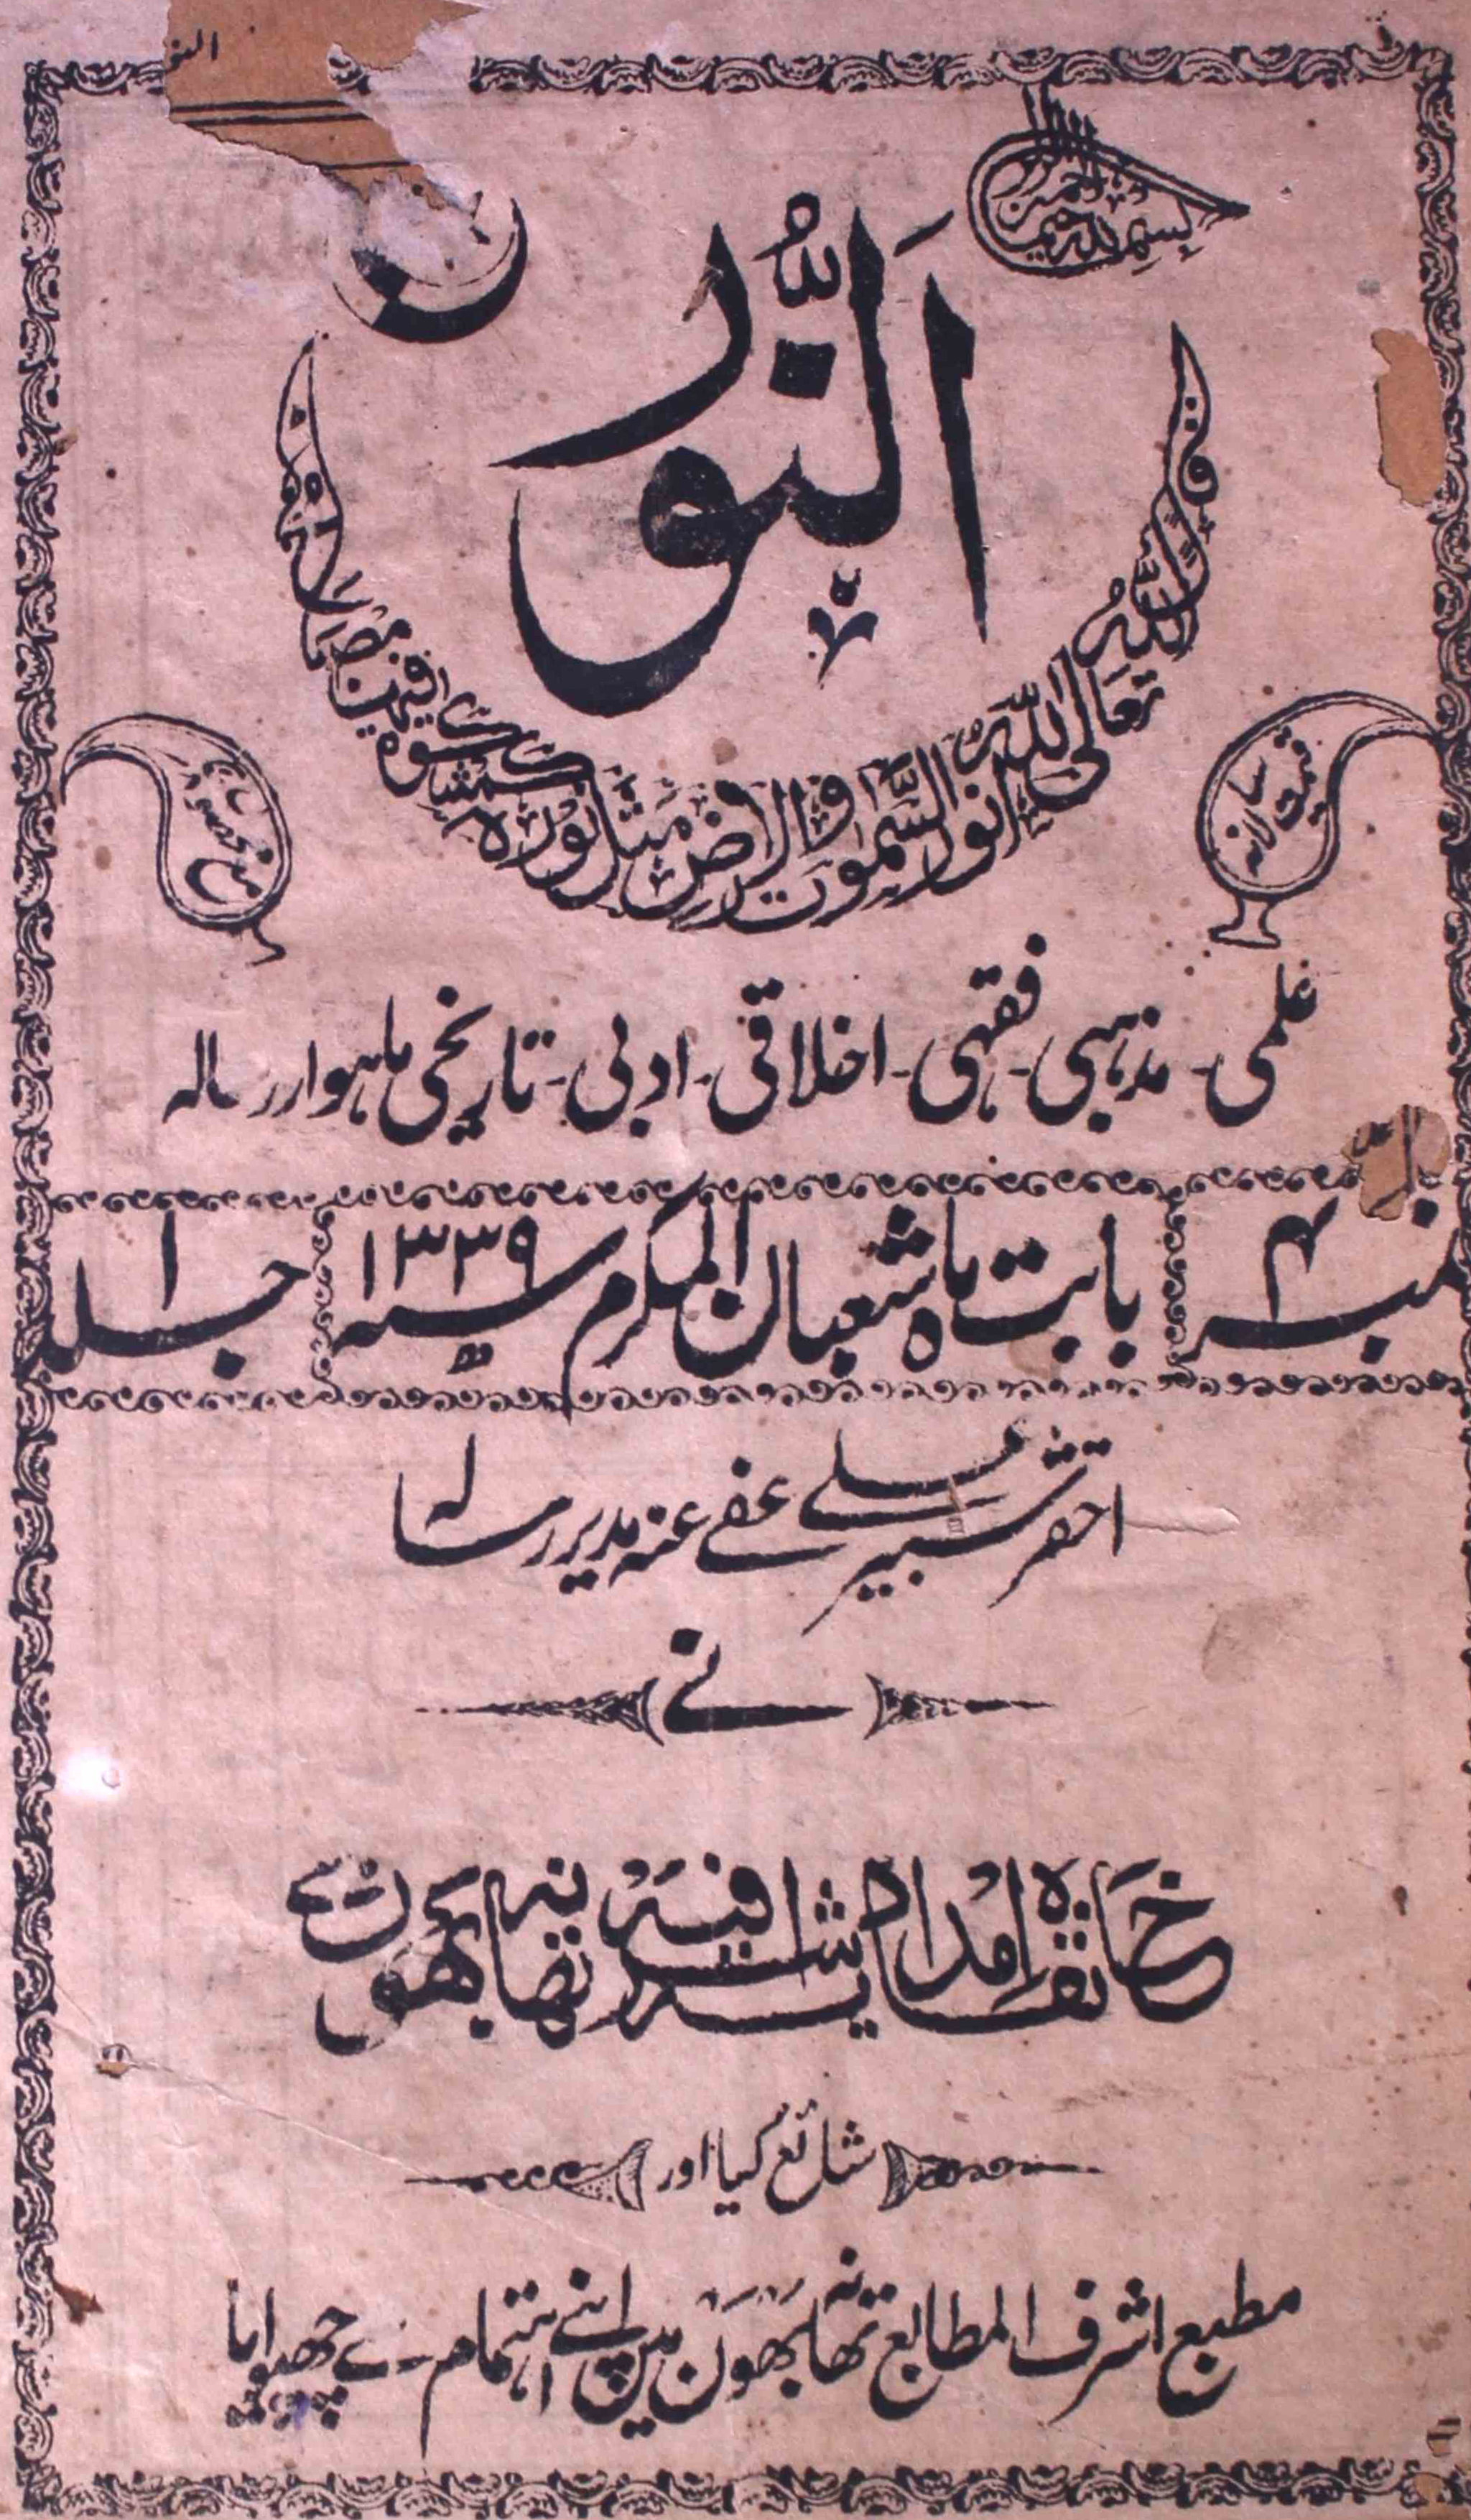 النو
بسم الله الرحمن الرحیم
اَلنُّور
قال اللہ تعالی اللہ نور السموت والارض مثل نورہ کمشکوۃ فیہا مصباح
قیمت سالانہ
مع محصول
علمی - مذہبی - فقہی - اخلاقی - ادبی - تاریخی ماہوار رسالہ
نمبر ۴ بابت ماہ شعبان المکرم سنہ ۱۳۳۹ جلد ۱
احقر شبیر علی عفی عنہ مدیر رسالہ
نے
خانقاہ امدادیہ اشرفیہ تھانہ بھون سے
شائع کیا اور
مطبع اشرف المطابع تھانہ بھون میں اپنے اہتمام سے چھپوایا